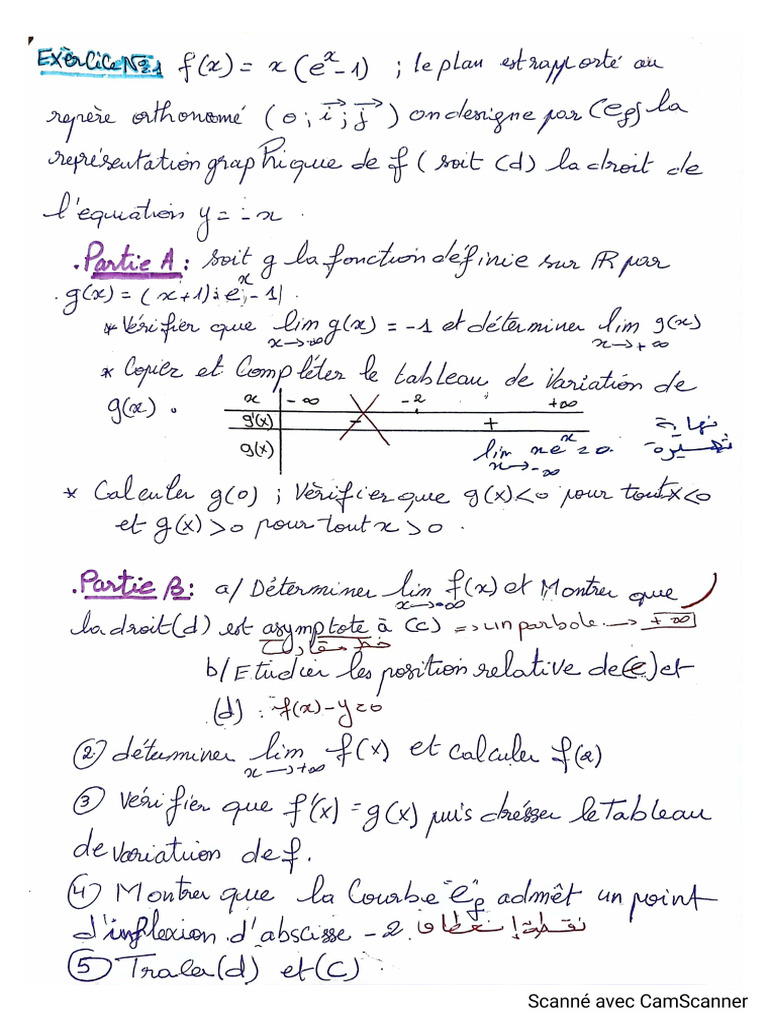 Exèrcice N°1 f(x) = x(eˣ-1) ; le plan est rapporté au
repère orthonomé (o; i⃗; j⃗) on designe par (Cf) la
représentation graphique de f (soit (d) la droit de
l'equation y = -x.
. Partie A : soit g la fonction définie sur ℝ par
. g(x) = (x+1).eˣ - 1
* Vérifier que lim g(x) = -1 et déterminer lim g(x)
x→-∞ x→+∞
* Copier et Compléter le tableau de Variation de
g(x).
x -∞ -2 +∞
g'(x) - +
g(x)
lim xeˣ = 0.
x→-∞
نهاية
شهيرة
* Calculer g(0) ; Vèrifier que g(x)<0 pour tout x<0
et g(x)>0 pour tout x>0.
. Partie B : a/ Déterminer lim f(x) et Montrer que
x→-∞
la droit (d) est asymptote à (C) => un parbole. → +∞
خط مقارب
b/ Etudier les position relative de (C) et
(d) : f(x)-y=0
② déterminer lim f(x) et calculer f(2)
x→+∞
③ Vérifier que f'(x) = g(x) puis drésser le Tableau
de variation de f.
④ Montrer que la Courbe Cf admêt un point
d'inflexion d'abscisse -2. نقطة إنعطاف
⑤ Traler (d) et (C)
Scanné avec CamScanner